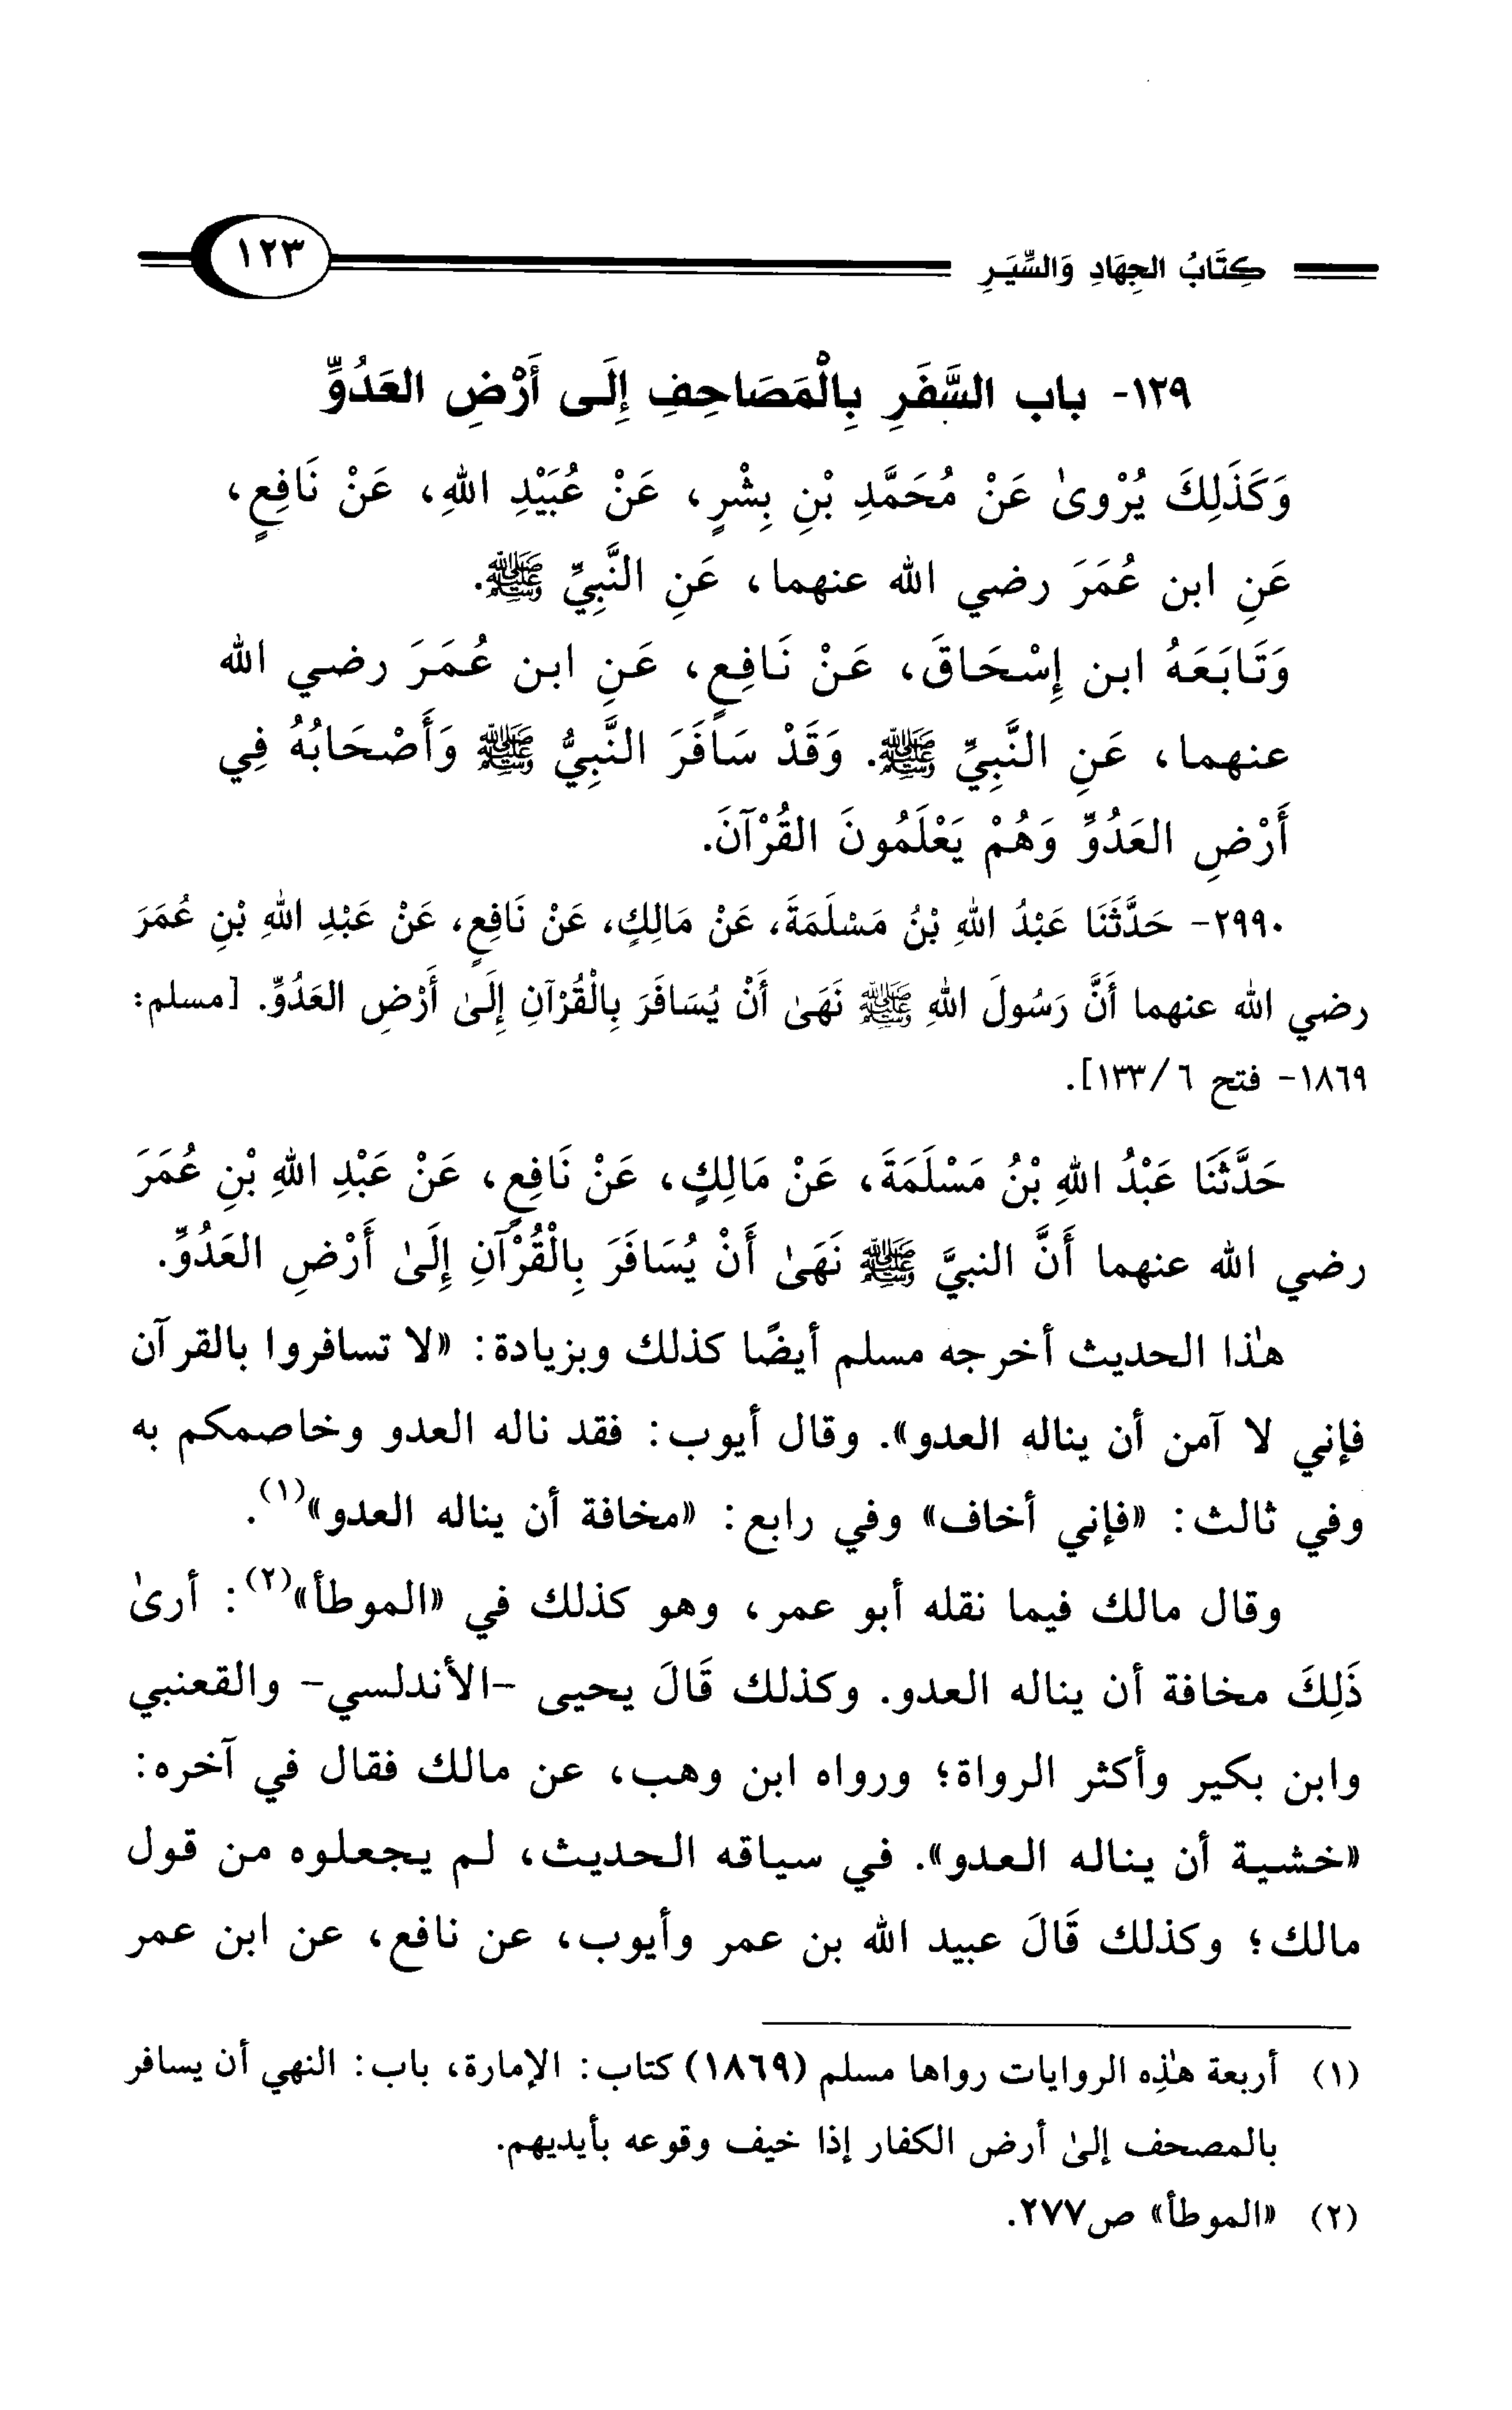 كِتَابُ الجِهَادِ وَالسِّيَرِ
١٢٣
١٢٩- باب السَّفَرِ بِالْمَصَاحِفِ إِلَى أَرْضِ العَدُوِّ
وَكَذَلِكَ يُرْوىٰ عَنْ مُحَمَّدِ بْنِ بِشْرٍ، عَنْ عُبَيْدِ اللهِ، عَنْ نَافِعٍ،
عَنِ ابن عُمَرَ رضي الله عنهما، عَنِ النَّبِيِّ ﷺ.
وَتَابَعَهُ ابن إِسْحَاقَ، عَنْ نَافِعٍ، عَنِ ابن عُمَرَ رضي الله
عنهما، عَنِ النَّبِيِّ ﷺ. وَقَدْ سَافَرَ النَّبِيُّ ﷺ وَأَصْحَابُهُ فِي
أَرْضِ العَدُوِّ وَهُمْ يَعْلَمُونَ القُرْآنَ.
٢٩٩٠- حَدَّثَنَا عَبْدُ اللهِ بْنُ مَسْلَمَةَ، عَنْ مَالِكٍ، عَنْ نَافِعٍ، عَنْ عَبْدِ اللهِ بْنِ عُمَرَ
رضي الله عنهما أَنَّ رَسُولَ اللهِ ﷺ نَهَىٰ أَنْ يُسَافَرَ بِالْقُرْآنِ إِلَىٰ أَرْضِ العَدُوِّ. [مسلم:
١٨٦٩- فتح ٦/ ١٣٣].
حَدَّثَنَا عَبْدُ اللهِ بْنُ مَسْلَمَةَ، عَنْ مَالِكٍ، عَنْ نَافِعٍ، عَنْ عَبْدِ اللهِ بْنِ عُمَرَ
رضي الله عنهما أَنَّ النبيَّ ﷺ نَهَىٰ أَنْ يُسَافَرَ بِالْقُرْآنِ إِلَىٰ أَرْضِ العَدُوِّ.
هٰذا الحديث أخرجه مسلم أيضًا كذلك وبزيادة: «لا تسافروا بالقرآن
فإني لا آمن أن يناله العدو». وقال أيوب: فقد ناله العدو وخاصمكم به
وفي ثالث: «فإني أخاف» وفي رابع: «مخافة أن يناله العدو»(١).
وقال مالك فيما نقله أبو عمر، وهو كذلك في «الموطأ»(٢): أرىٰ
ذَلِكَ مخافة أن يناله العدو. وكذلك قَالَ يحيى -الأندلسي- والقعنبي
وابن بكير وأكثر الرواة؛ ورواه ابن وهب، عن مالك فقال في آخره:
«خشية أن يناله العدو». في سياقه الحديث، لم يجعلوه من قول
مالك؛ وكذلك قَالَ عبيد الله بن عمر وأيوب، عن نافع، عن ابن عمر
(١) أربعة هٰذِه الروايات رواها مسلم (١٨٦٩) كتاب: الإمارة، باب: النهي أن يسافر
بالمصحف إلىٰ أرض الكفار إذا خيف وقوعه بأيديهم.
(٢) «الموطأ» ص٢٧٧.